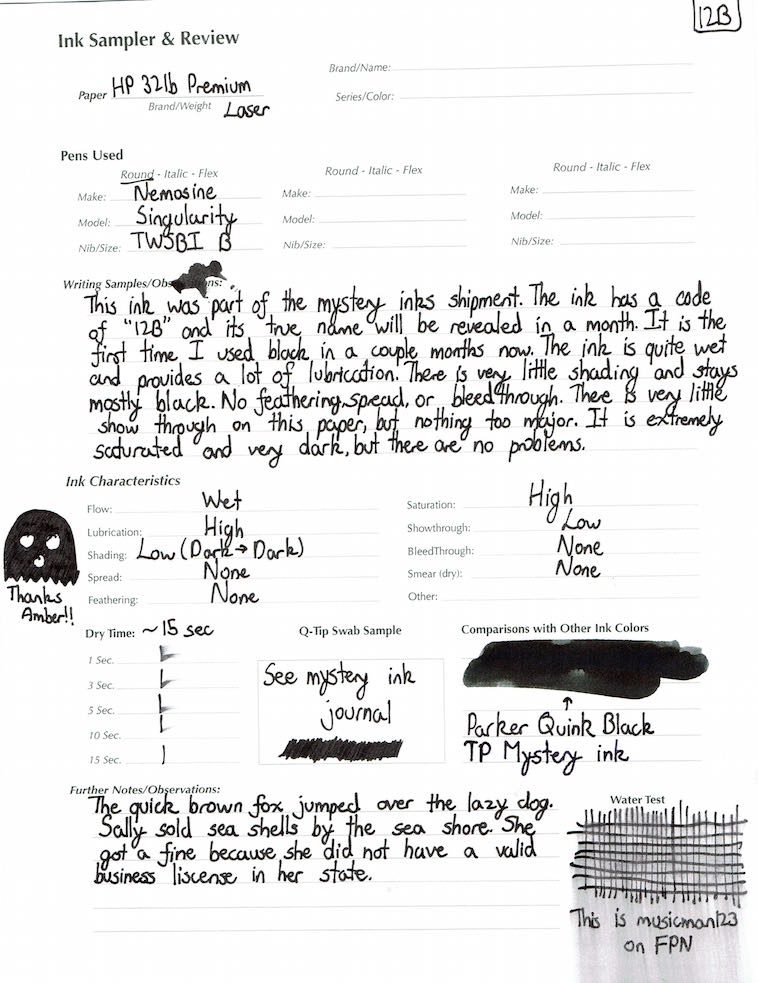 12B
Ink Sampler & Review
Brand/Name:
Paper HP 32lb Premium
Series/Color:
Brand/Weight Laser
Pens Used
Round - Italic - Flex
Round - Italic - Flex
Round - Italic - Flex
Make: Nemosine
Make:
Make:
Model: Singularity
Model:
Model:
Nib/Size: TWSBI B
Nib/Size:
Nib/Size:
Writing Samples/Observations:
This ink was part of the mystery inks shipment. The ink has a code
of "12B" and its true name will be revealed in a month. It is the
first time I used black in a couple months now. The ink is quite wet
and provides a lot of lubrication. There is very little shading and stays
mostly black. No feathering, spread, or bleedthrough. There is very little
show through on this paper, but nothing too major. It is extremely
saturated and very dark, but there are no problems.
Ink Characteristics
Flow: Wet
Saturation: High
Lubrication: High
Showthrough: Low
Shading: Low (Dark → Dark)
BleedThrough: None
Spread: None
Smear (dry): None
Feathering: None
Other:
Thanks
Amber!!
Dry Time: ~15 sec
1 Sec.
3 Sec.
5 Sec.
10 Sec.
15 Sec.
Q-Tip Swab Sample
See mystery ink
journal
Comparisons with Other Ink Colors
↑
Parker Quink Black
TP Mystery ink
Further Notes/Observations:
The quick brown fox jumped over the lazy dog.
Sally sold sea shells by the sea shore. She
got a fine because she did not have a valid
business liscense in her state.
Water Test
This is musicman123
on FPN